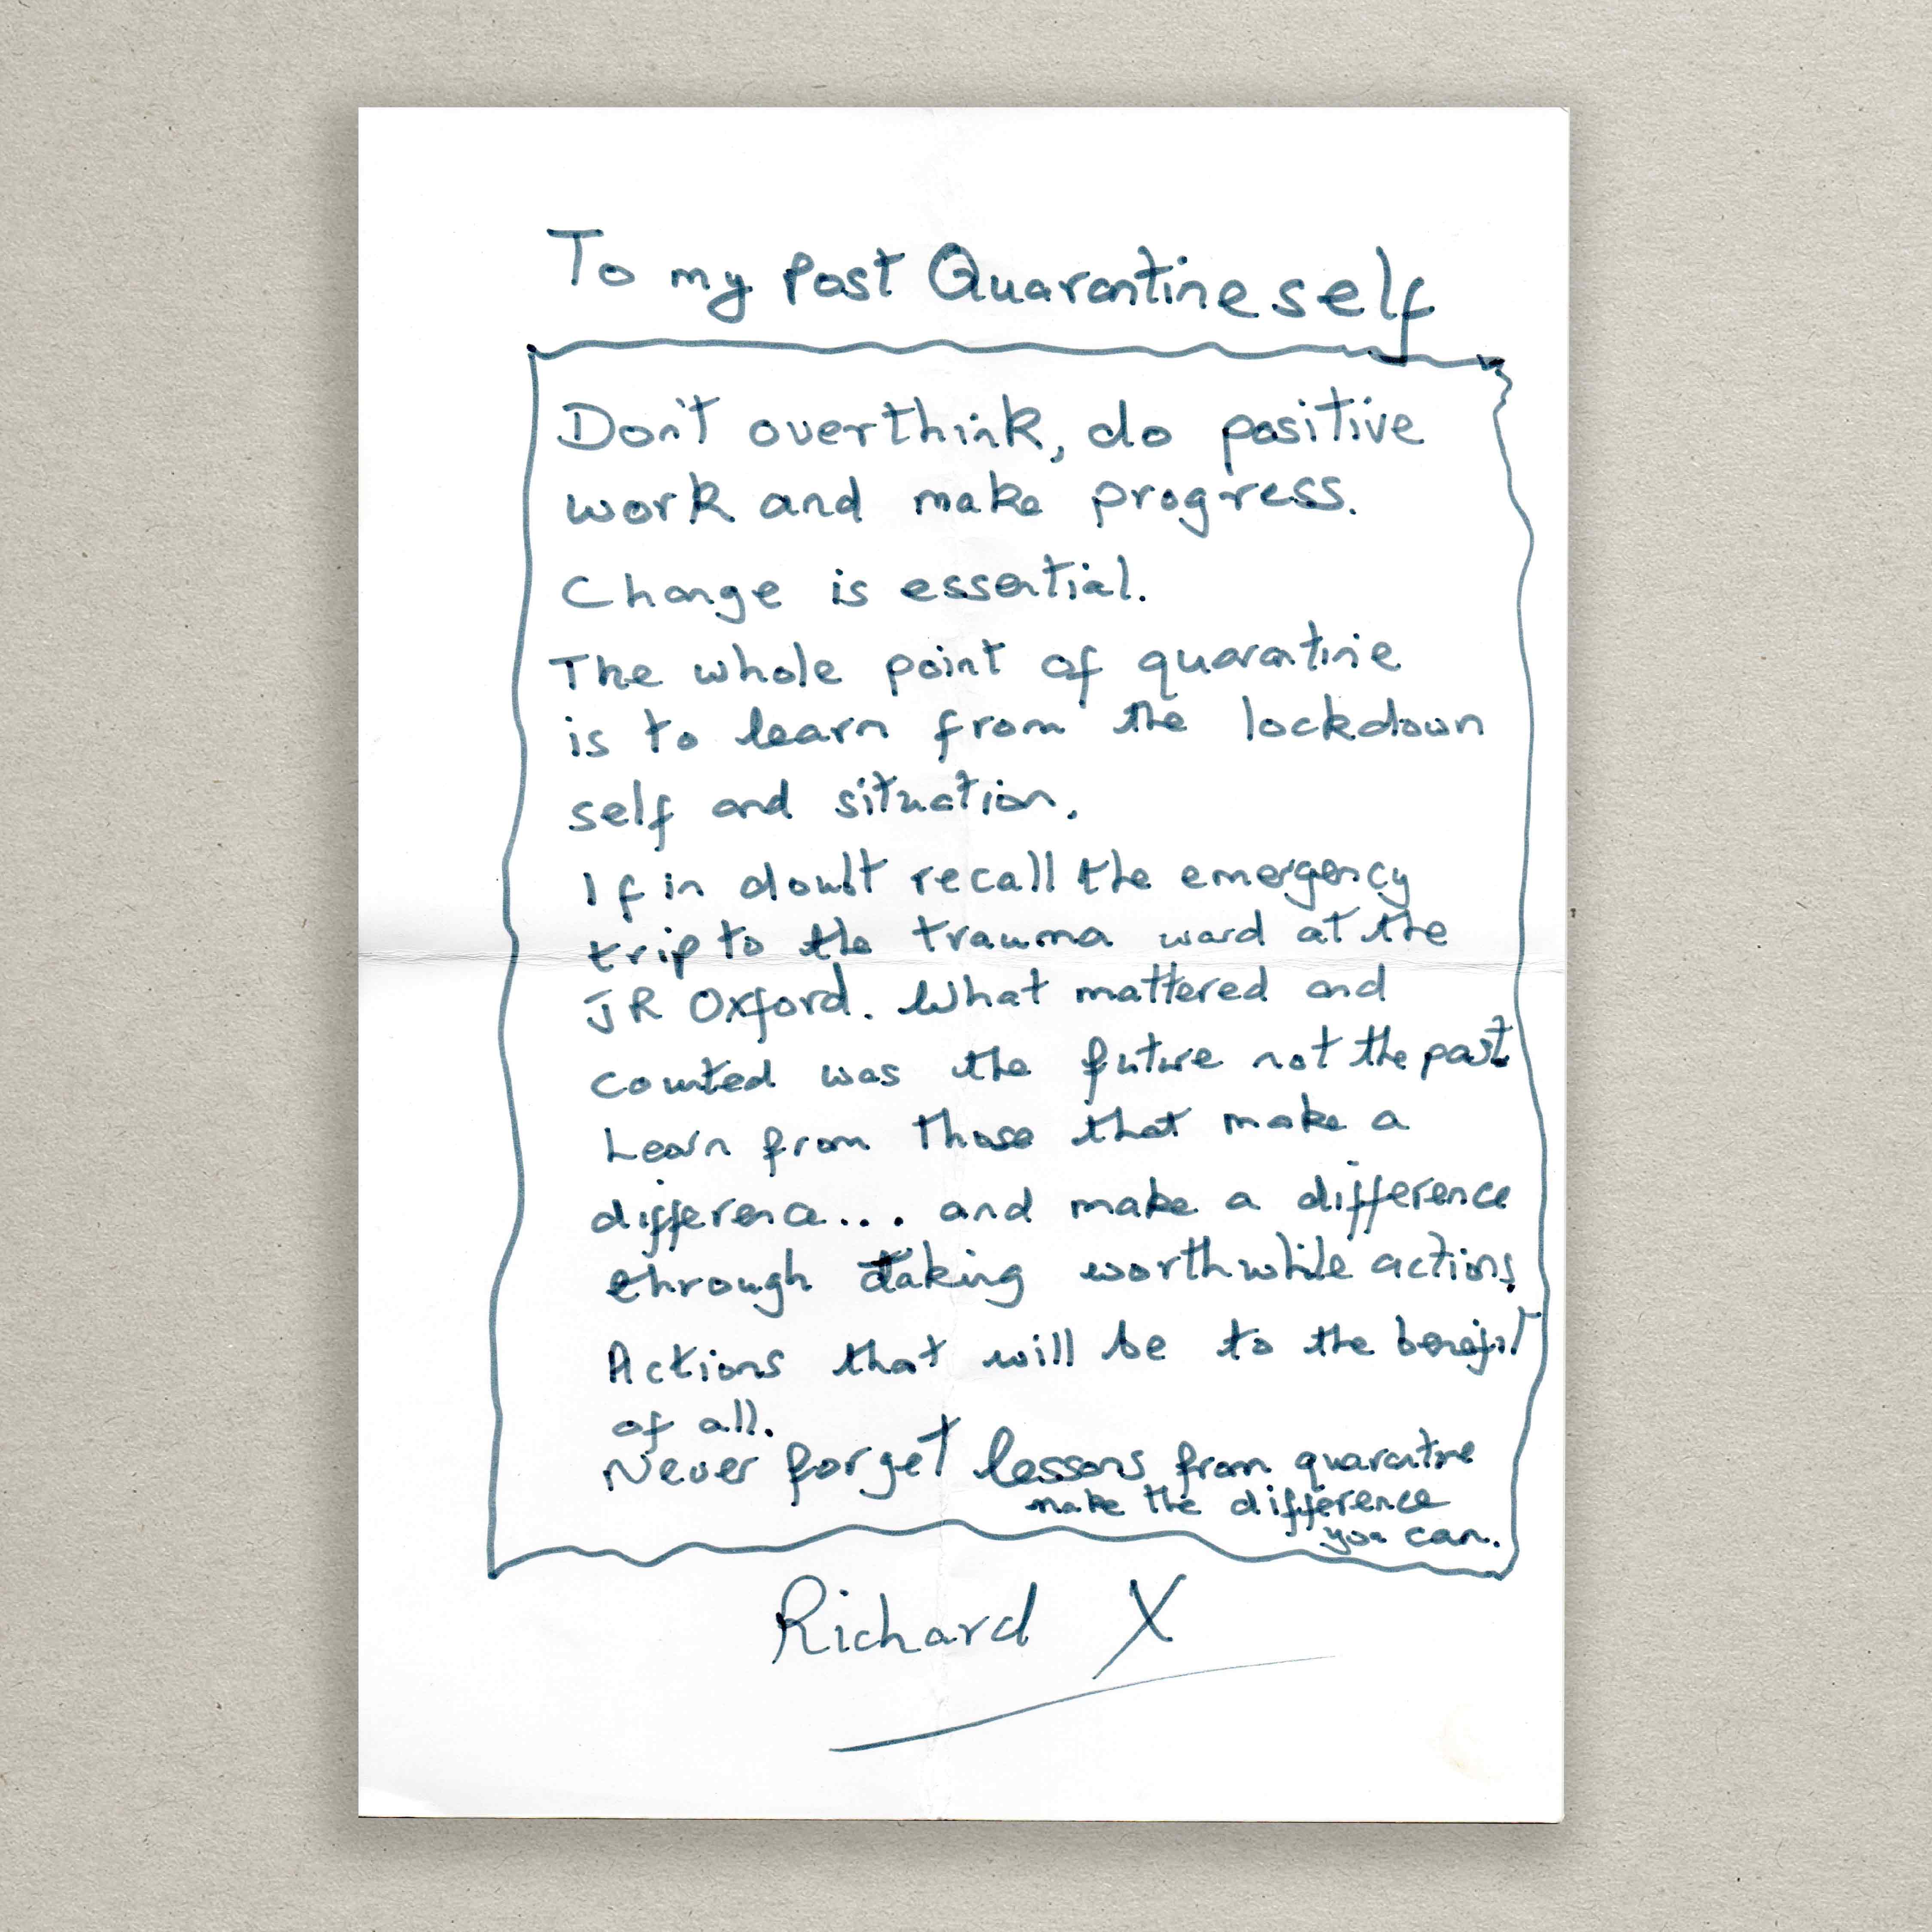 To my post Quarantine self
Don't overthink, do positive
work and make progress.
Change is essential.
The whole point of quarantine
is to learn from the lockdown
self and situation.
If in doubt recall the emergency
trip to the trauma ward at the
JR Oxford. What mattered and
counted was the future not the past
Learn from those that make a
difference... and make a difference
through taking worthwhile actions.
Actions that will be to the benefit
of all.
Never forget lessons from quarantine
make the difference
you can.
Richard X